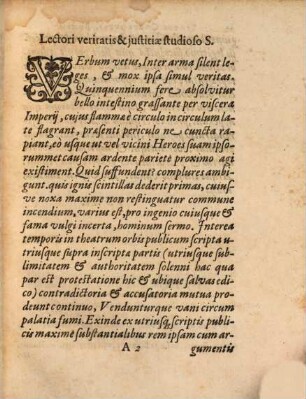 Lectori veritatis & justitiæ studioso S.
VErbum vetus, Inter arma silent le-
ges, & mox ipsa simul veritas.
Quinquennium fere absolvitur
bello intestino grassante per viscera
Imperij, cujus flammæ circulo in circulum la-
te flagrant, præsenti periculo ne cuncta ra-
piant, eo usque ut vel vicini Heroes suam ipso-
rummet causam ardente pariete proximo agi
existiment. Quid suffundent? complures ambi-
gunt. quis ignis scintillas dederit primas, cuius-
ve noxa maxime non restinguatur commune
incendium, varius est, pro ingenio cuiusque &
fama vulgi incerta, hominum sermo. Interea
temporis in theatrum orbis publicum scripta u-
triusque supra inscripta partis (utriusque sub-
limitatem & authoritatem solenni hac qua
par est protestatione hic & ubique salvas edi-
co) contradictoria & accusatoria mutua pro-
deunt continuo, Vendunturque vani circum
palatia fumi. Exinde ex utriusq; scriptis publi-
cis maximè substantialibus rem ipsam cum ar-
A 2 gumentis